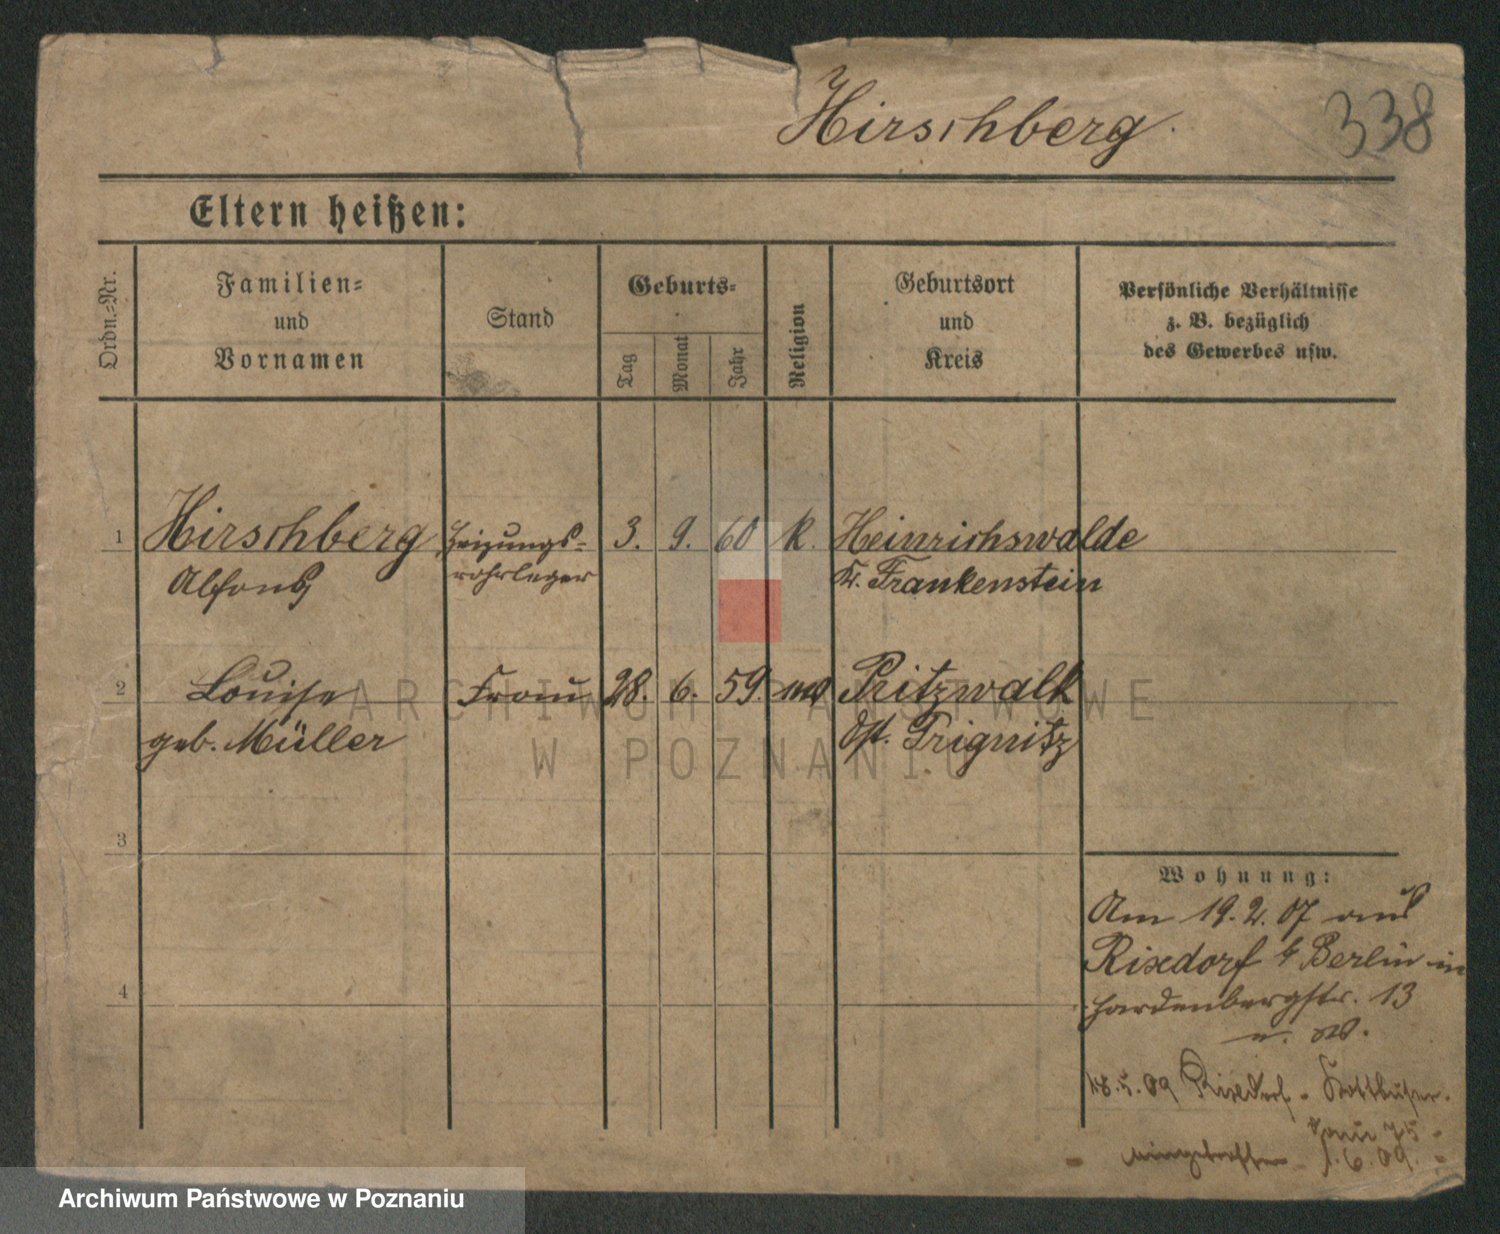 Hirschberg.
338
Eltern heißen:
Ordn.-Nr.
Familien-
und
Vornamen
Stand
Geburts-
Tag
Monat
Jahr
Religion
Geburtsort
und
Kreis
Persönliche Verhältnisse
z. B. bezüglich
des Gewerbes usw.
1 Hirschberg Heizungs- 3. 9. 60 k. Heinrichswalde
Alfons rohrleger Kr. Frankenstein
2 Louise Frau 28. 6. 59. Pritzwalk
geb. Müller Ost. Prignitz
3
4
Wohnung:
Am 19.2.07 aus
Rixdorf b/ Berlin in
Hardenbergstr. 13
18.5.09 Rixdorf - Kottbuser-
75
1.6.09.
ARCHIWUM PAŃSTWOWE
W POZNANIU
Archiwum Państwowe w Poznaniu